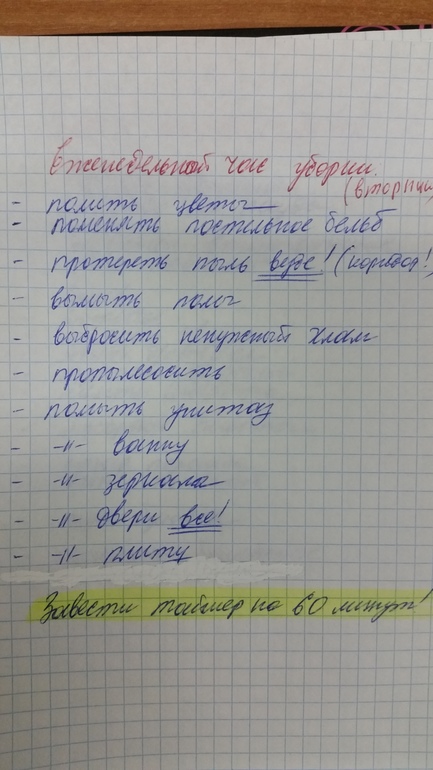 Еженедельный час уборки.
(вторник
- полить цветы
- поменять постельное бельё
- протереть пыль везде! (коридор!)
- вымыть полы
- выбросить ненужный хлам
- пропылесосить
- помыть унитаз
- -"- ванну
- -"- зеркала
- -"- двери все!
- -"- плиту
Завести таймер на 60 минут!